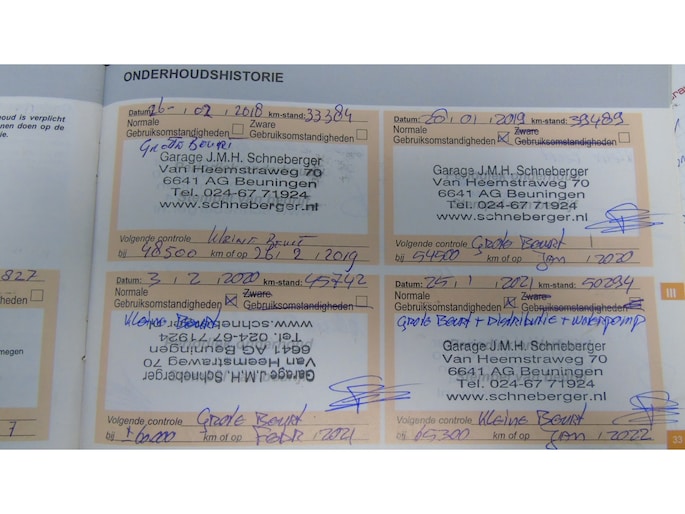 ONDERHOUDSHISTORIE
oud is verplicht
nen doen op de
ie.
Datum: 26- 02 2018 km-stand: 33384
Normale
Gebruiksomstandigheden
Zware
Gebruiksomstandigheden
Grote Beurt
Garage J.M.H. Schneberger
Van Heemstraweg 70
6641 AG Beuningen
Tel. 024-67 71924
www.schneberger.nl
Volgende controle Kleine Beurt
bij 48500 km of op 26 2 2019
Datum: 28 01 2019 km-stand: 39489
Normale
Gebruiksomstandigheden
Zware
Gebruiksomstandigheden
Garage J.M.H. Schneberger
Van Heemstraweg 70
6641 AG Beuningen
Tel. 024-67 71924
www.schneberger.nl
Volgende controle Grote Beurt
bij 54500 km of op Jan 2020
Datum: 3 2 2020 km-stand: 45742
Normale
Gebruiksomstandigheden
Zware
Gebruiksomstandigheden
Kleine Beurt
Garage J.M.H. Schneberger
Van Heemstraweg 70
6641 AG Beuningen
Tel. 024-67 71924
www.schneberger.nl
Volgende controle Grote Beurt
bij ± 60.000 km of op Febr 2021
Datum: 25 1 2021 km-stand: 50294
Normale
Gebruiksomstandigheden
Zware
Gebruiksomstandigheden
Grote Beurt + Distributie + Waterpomp
Garage J.M.H. Schneberger
Van Heemstraweg 70
6641 AG Beuningen
Tel. 024-67 71924
www.schneberger.nl
Volgende controle Kleine Beurt
bij 65300 km of op Jan 2022
827
heden
megen
7
III
33